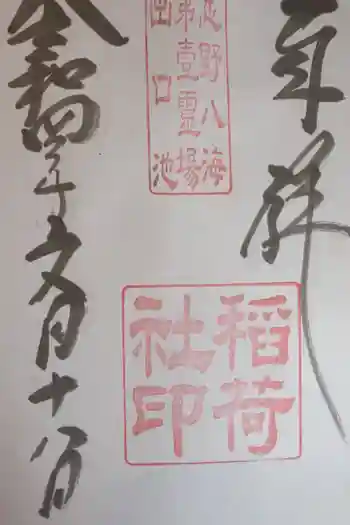 奉拝
忍野八海
第壹靈場
出口池
稲荷
社印
令和四年文月十八日